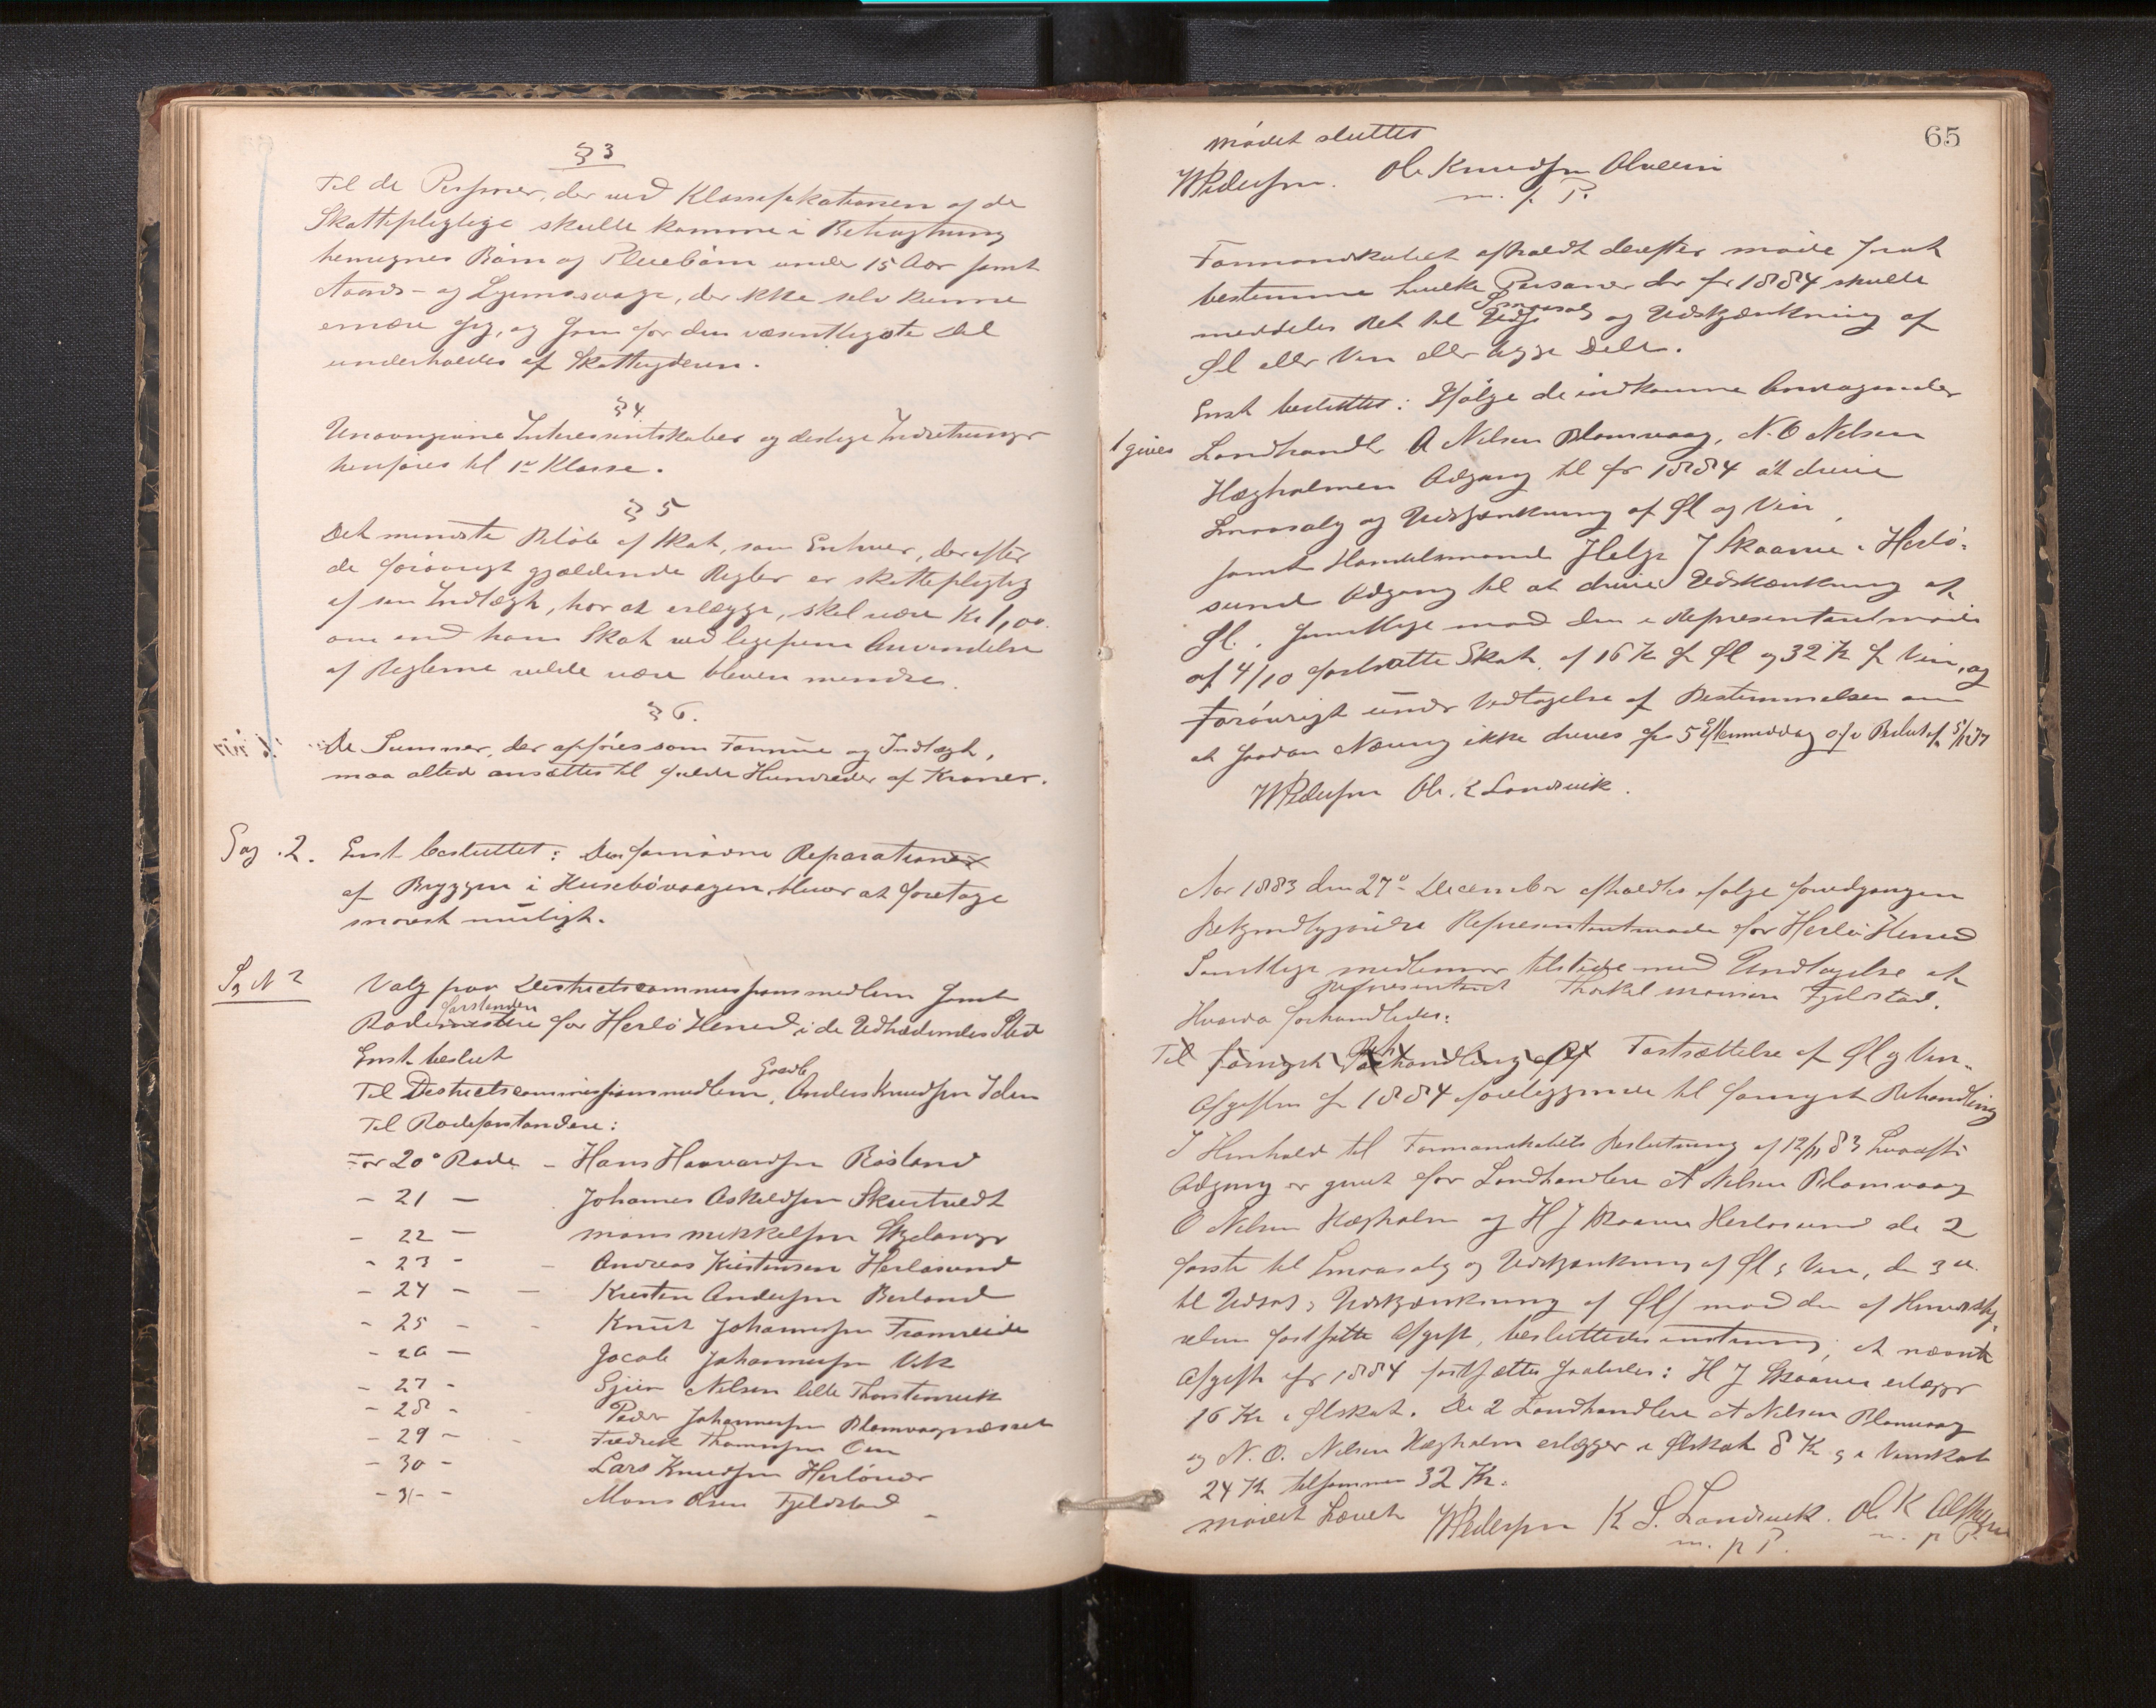 § 3
Til de Personer, der ved Klassifikationen af de
Skattepligtige skulle komme i Betragtning
henregnes Børn og Pleiebørn under 15 Aar samt
Aands- og Legemssvage, der ikke selv kunne
ernære sig, og som for den væsentligste Del
underholdes af Skatteyderen.
§ 4
Unavngivne Interessentskaber og deslige Indretninger
henføres til 1ste Klasse.
§ 5
Det mindste Beløb af Skat, som Enhver, der efter
de forøvrigt gjældende Regler er skattepligtig
af sin Indtægt, har at erlægge, skal være Kr 1,00.
om end hans Skat ved ligefrem Anvendelse
af Reglerne vilde være bleven mindre.
§ 6.
De Summer, der opføres som Formue og Indtægt,
maa altid ansættes til fulde Hundreder af Kroner.
Sag .2. Enst besluttet: Den fornødne Reparation
af Bryggen i Husebøvaagen bliver at foretage
snarest muligt.
Sag N 2 Valg paa Districtscommissionsmedlem samt
Rodeforstandere for Herlø Herred i de Udtrædendes Sted
Enst beslut
Til Districtscommissionsmedlem, Anders Knudsen Iden
Til Rodeforstandere:
For 20de Rode - Hans Haavardsen Røsland
- 21 - Johannes Askeldsen Skurtvedt
- 22 - Mons Mikkelsen Skjelanger
- 23 - - Andreas Kristensen Herløsund
- 24 - - Kristen Andersen Berland
- 25 - - Knut Johannessen Tramreide
- 26 - Jacob Johannessen Vik
- 27 - Gjert Nilsen lille Thorsteinsvik
- 28 - Peder Johannessen Blomvaagnesset
- 29 - - Fredrik Thomessen Oen
- 30 - Lars Knudsen Herløvær
- 31 - - Mons Olsen Fjeldstad
65
Mødet sluttes
WPedersen. Ole Knudsen Alveim
m. f. P.
Formandskabet afholdt derefter møde for at
bestemme hvilke Personer der for 1884 skulle
meddeles Ret til Smaasalg og Udskjænkning af
Øl eller Vin eller begge Dele.
Enst besluttet: Ifølge de indkomne Andragender
gives Landhandlr A Nilsen Blomvaag, N. O Nilsen
Hægholmen Adgang til for 1884 at drive
Smaasalg og Udskjænkning af Øl og Vin
samt Handelsmand Helge J Skaanes i Herlø-
sund Adgang til at drive Udskænkning af
Øl. Samtlige mod den i Representantmøde
af 4/10 fastsatte Skat af 16 Kr for Øl og 32 Kr for Vin, og
forøvrigt under Vedtagelse af Bestemmelsen om
at saadan Næring ikke drives før 5 Eftermiddag
WPedersen Ole K Landsvik.
Aar 1883 den 27de December afholdtes ifølge foregangen
Bekjendtgjørelse Representantmøde for Herlø Herred
Samtlige medlemmer tilstede med Undtagelse af
representant Thorkel Monsen Fjeldstad.
Hvorda forhandledes:
Til fornyet Behandling Fastsættelse af Øl og Vin-
Afgiften for 1884 foreliggende til fornyet Behandling
I Henhold til Formandskabets Beslutning af 12/11 83 hvorefter
Adgang er givet for Landhandlere A Nilsen Blomvaag
O Nilsen Hægholm og H J Skaanes Herløsund de 2
første til Smaasalg og Udskjænkning af Øl & Vin, den 3die
til Udsalg & Udskjænkning af Øl mod den af Herredssty-
relsen fastsatte Afgift, besluttedes enstemmig, at nævnte
Afgift for 1884 fastsættes saaledes: H J Skaanes erlægger
16 Kr i Ølskat. De 2 Landhandlere A Nilsen Blomvaag
og N. O. Nilsen Hægholm erlægger i Ølskat 8 Kr & i Vinskat
24 Kr tilsammen 32 Kr.
Mødet hævet WPedersen K S. Landsvik. Ole K
m. p P. m. p P.